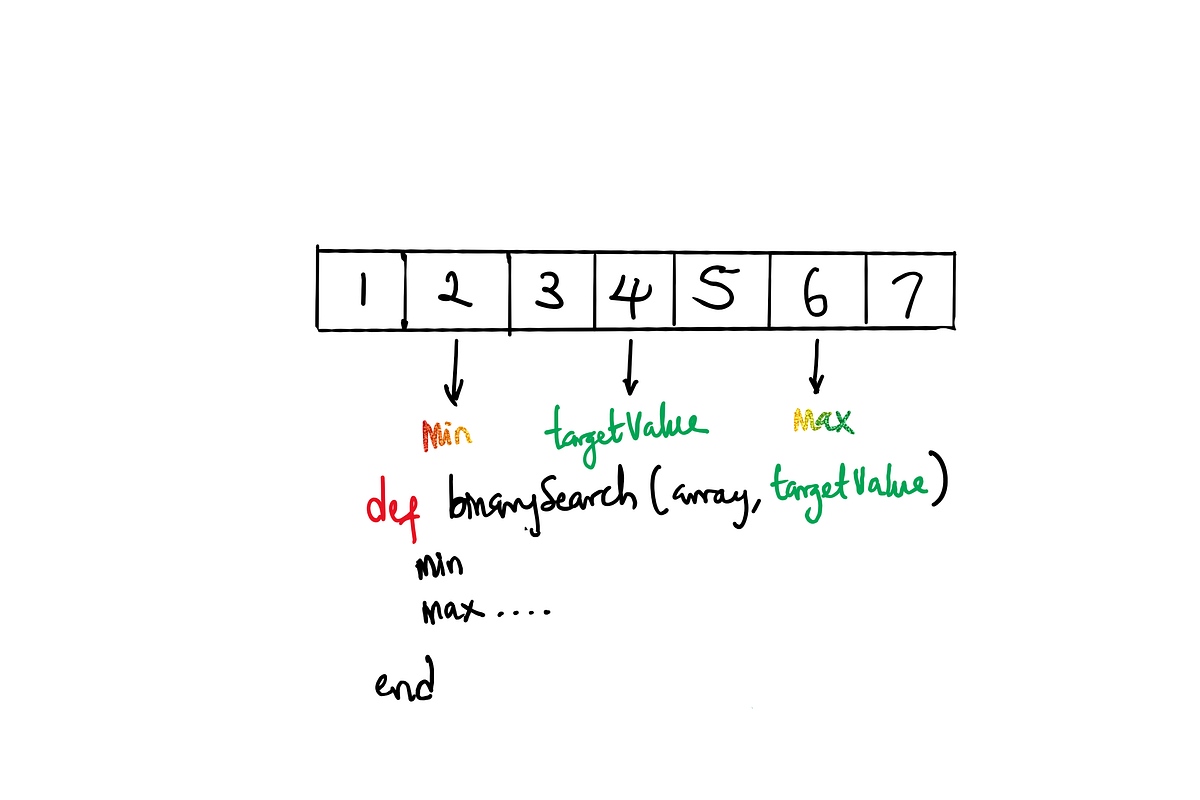 1 2 3 4 5 6 7
Min targetValue Max
def binarySearch (array, targetValue)
min
max ....
end